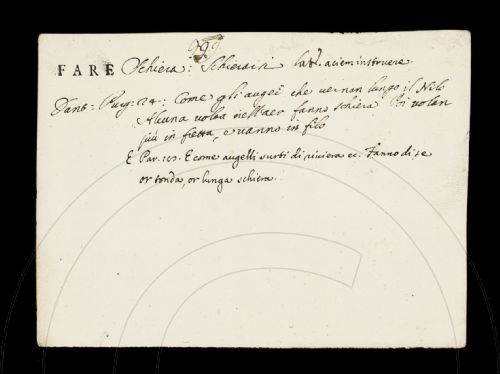 799
FARE Schiera: Schierarsi lat. aciem instruere
Dant: Purg: 24: Come gli augei che vernan lungo il Nilo
Alcuna volta nell'aer fanno schiera Poi volan
più in fretta, e vanno in filo
E Par. 18. E come augelli surti di riviera ec. Fanno di se
or tonda, or lunga schiera.